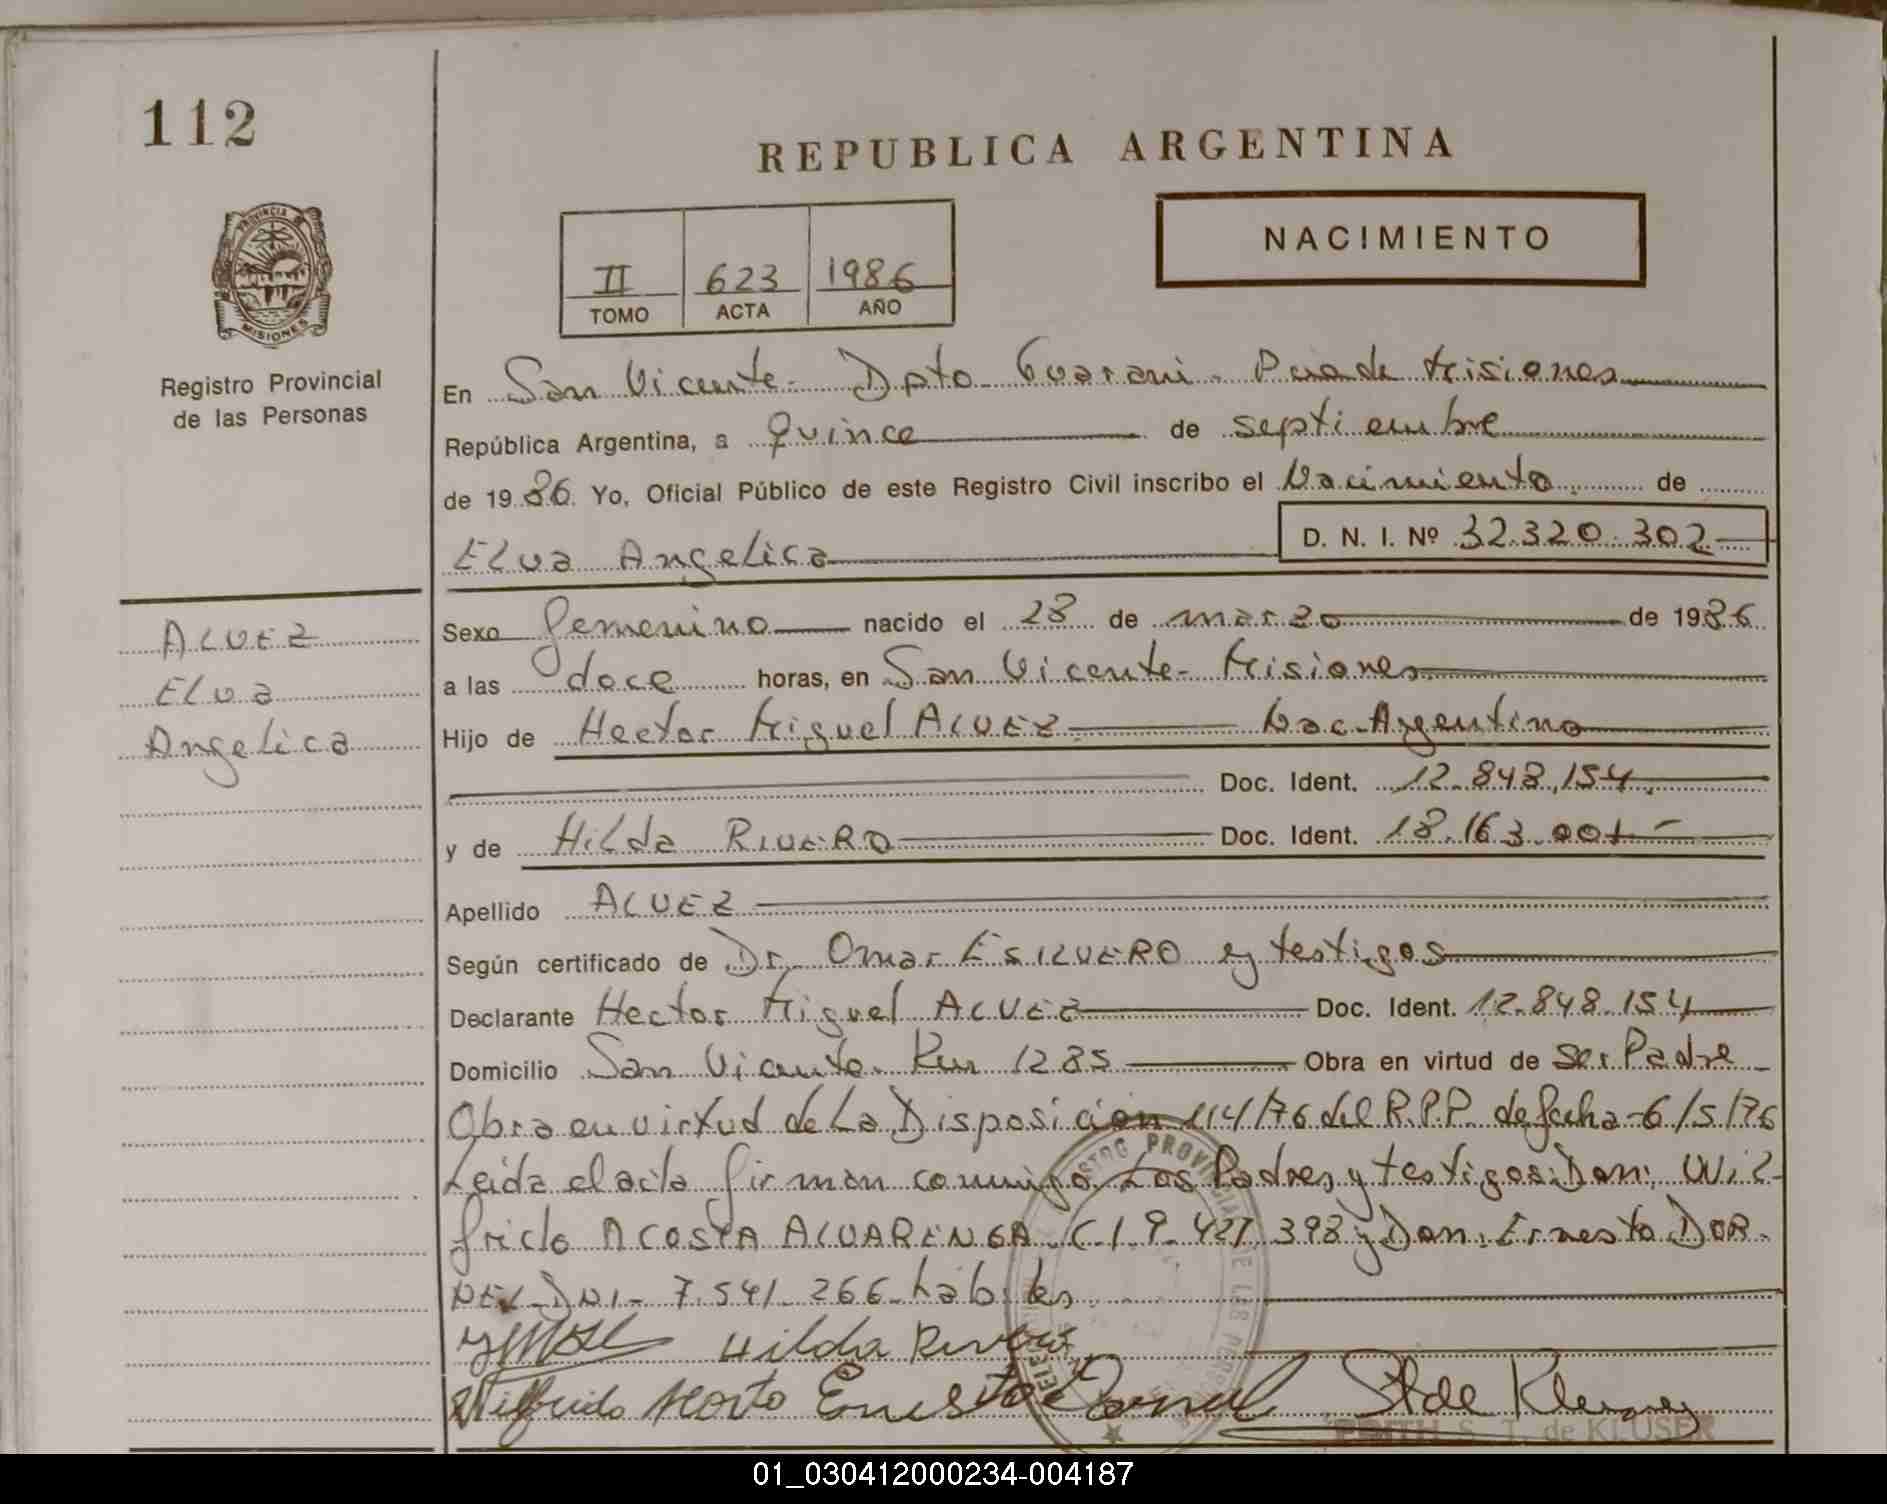 112
REPUBLICA ARGENTINA
NACIMIENTO
II 623 1986
TOMO ACTA AÑO
PROVINCIA DE
MISIONES
Registro Provincial
de las Personas
En San Vicente - Dpto Guarani - Pcia de Misiones
República Argentina, a Quince de septiembre
de 1986. Yo, Oficial Público de este Registro Civil inscribo el Nacimiento de
Elva Angelica D. N. I. Nº 32.320.302
ALVEZ
Elva
Angelica
Sexo femenino nacido el 28 de marzo de 1986
a las doce horas, en San Vicente - Misiones
Hijo de Hector Miguel ALVEZ Nac. Argentino
Doc. Ident. 12.848.154
y de Hilda RIVERO Doc. Ident. 18.163.001
Apellido ALVEZ
Según certificado de Dr. Omar ESILVERO y testigos
Declarante Hector Miguel ALVEZ Doc. Ident. 12.848.154
Domicilio San Vicente. Km 1285 Obra en virtud de Ser Padre
Obra en virtud de La Disposición 114/76 del R.P.P. de fecha 6/5/76
Leida el acta firman conmigo Los Padres y testigos: Don: Wil-
frido ACOSTA ALVARENGA C.I. 9.427.398 y Don: Ernesto DOR-
NEL DNI - 7.541.266 habiles
Hilda Rivero
Wilfrido Ernesto Dornel St de
EDITH S. T. de KLUSER
01_030412000234-004187